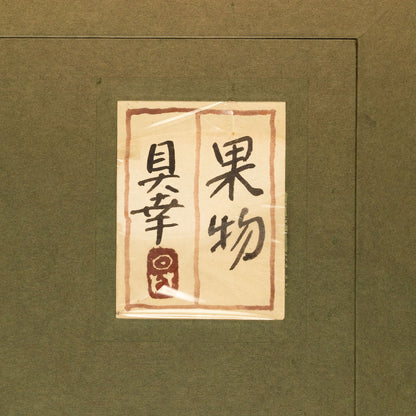 果物
具幸